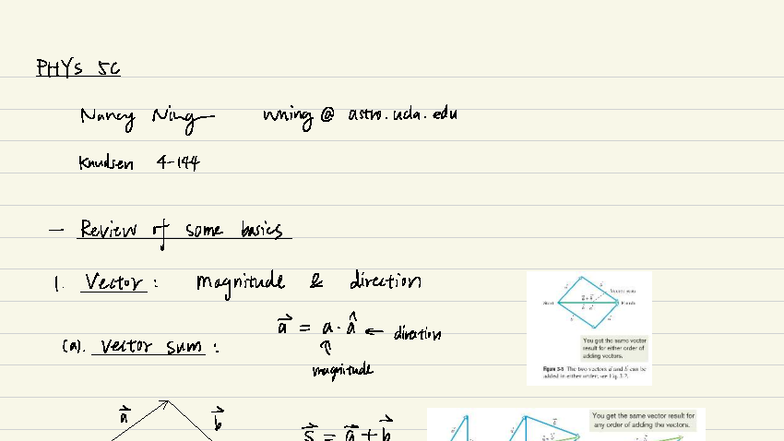 PHYS 5C
Nancy Ning wning @ astro.ucla.edu
Knudsen 4-144
- Review of some basics
1. Vector : magnitude & direction
a⃗ = a · â ← direction
magnitude
(a). Vector sum :
Vector sum
Start
Finish
You get the same vector
result for either order of
adding vectors.
Figure 3-3 The two vectors a⃗ and b⃗ can be
added in either order; see Eq. 3-2.
a⃗ b⃗
s⃗ = a⃗ + b⃗
You get the same vector result for
any order of adding the vectors.